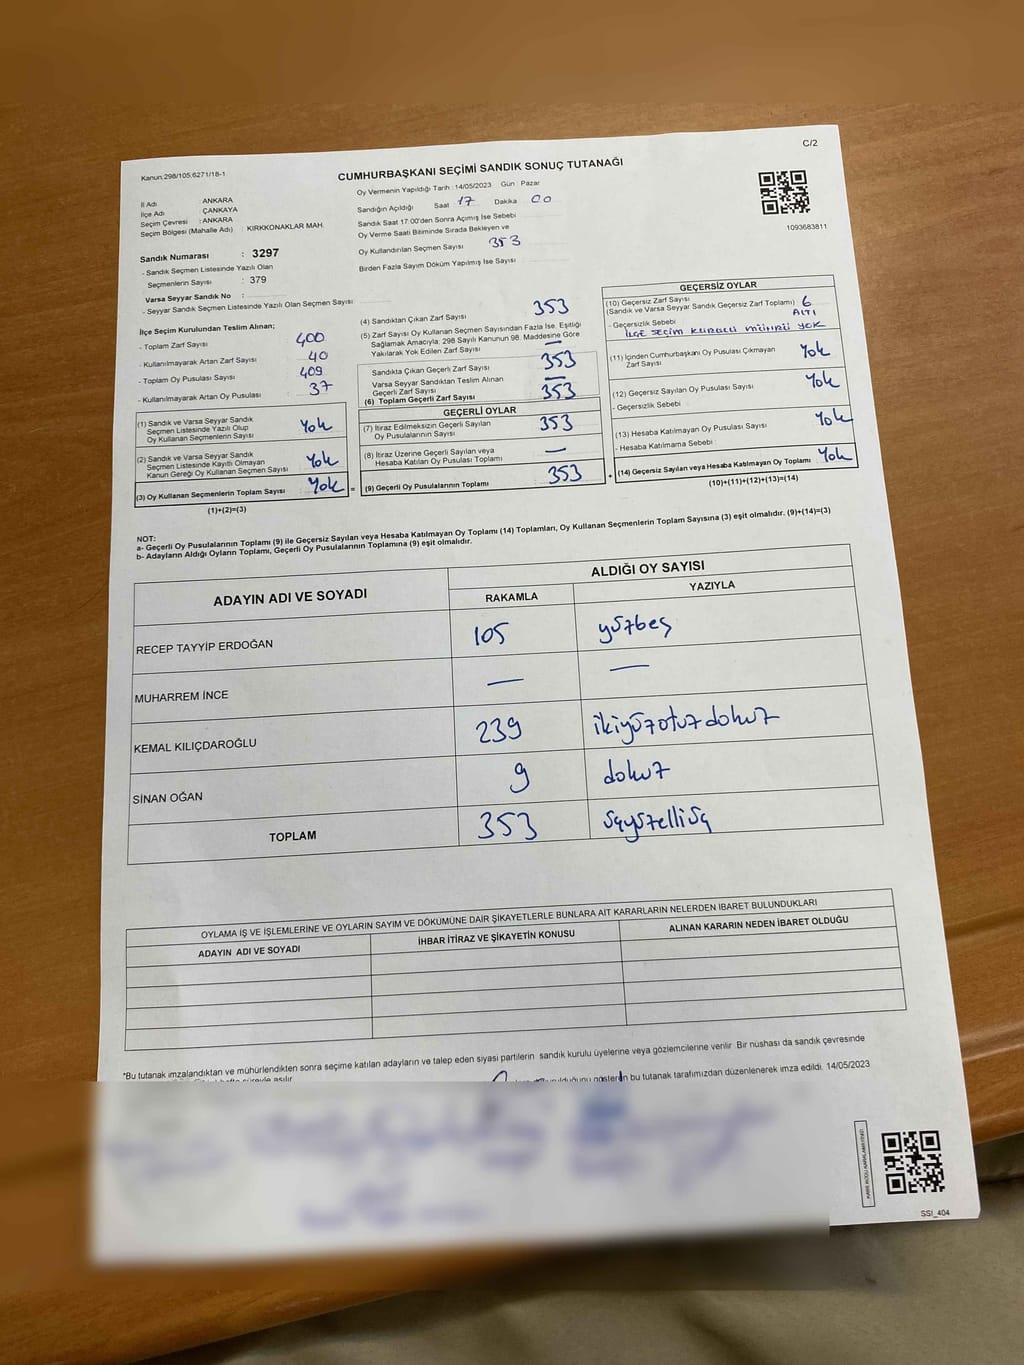 C/2
Kanun.298/105.6271/18-1
CUMHURBAŞKANI SEÇİMİ SANDIK SONUÇ TUTANAĞI
Oy Vermenin Yapıldığı Tarih : 14/05/2023 Gün : Pazar
İl Adı : ANKARA
İlçe Adı : ÇANKAYA
Seçim Çevresi : ANKARA
Seçim Bölgesi (Mahalle Adı) : KIRKKONAKLAR MAH.
Sandığın Açıldığı Saat 17 Dakika 00
Sandık Saat 17:00'den Sonra Açılmış İse Sebebi
Oy Verme Saati Bitiminde Sırada Bekleyen ve
Oy Kullandırılan Seçmen Sayısı 353
Birden Fazla Sayım Döküm Yapılmış İse Sayısı :
1093683811
Sandık Numarası : 3297
- Sandık Seçmen Listesinde Yazılı Olan
Seçmenlerin Sayısı : 379
Varsa Seyyar Sandık No :
- Seyyar Sandık Seçmen Listesinde Yazılı Olan Seçmen Sayısı :
İlçe Seçim Kurulundan Teslim Alınan;
- Toplam Zarf Sayısı : 400
- Kullanılmayarak Artan Zarf Sayısı : 40
- Toplam Oy Pusulası Sayısı : 409
- Kullanılmayarak Artan Oy Pusulası : 37
(1) Sandık ve Varsa Seyyar Sandık
Seçmen Listesinde Yazılı Olup
Oy Kullanan Seçmenlerin Sayısı : Yok
(2) Sandık ve Varsa Seyyar Sandık
Seçmen Listesinde Kayıtlı Olmayan
Kanun Gereği Oy Kullanan Seçmen Sayısı : Yok
(3) Oy Kullanan Seçmenlerin Toplam Sayısı : Yok
(1)+(2)=(3)
(4) Sandıktan Çıkan Zarf Sayısı : 353
(5) Zarf Sayısı Oy Kullanan Seçmen Sayısından Fazla İse, Eşitliği
Sağlamak Amacıyla, 298 Sayılı Kanunun 98. Maddesine Göre
Yakılarak Yok Edilen Zarf Sayısı : —
Sandıkta Çıkan Geçerli Zarf Sayısı : 353
Varsa Seyyar Sandıktan Teslim Alınan
Geçerli Zarf Sayısı : —
(6) Toplam Geçerli Zarf Sayısı : 353
GEÇERLİ OYLAR
(7) İtiraz Edilmeksizin Geçerli Sayılan
Oy Pusulalarının Sayısı : 353
(8) İtiraz Üzerine Geçerli Sayılan veya
Hesaba Katılan Oy Pusulası Toplamı : —
= (9) Geçerli Oy Pusulalarının Toplamı : 353
GEÇERSİZ OYLAR
(10) Geçersiz Zarf Sayısı
(Sandık ve Varsa Seyyar Sandık Geçersiz Zarf Toplamı) : 6
ALTI
- Geçersizlik Sebebi :
İLÇE SEÇİM KURULU MÜHÜRÜ YOK
(11) İçinden Cumhurbaşkanı Oy Pusulası Çıkmayan
Zarf Sayısı : Yok
(12) Geçersiz Sayılan Oy Pusulası Sayısı : Yok
- Geçersizlik Sebebi :
(13) Hesaba Katılmayan Oy Pusulası Sayısı : Yok
- Hesaba Katılmama Sebebi :
+ (14) Geçersiz Sayılan veya Hesaba Katılmayan Oy Toplamı : Yok
(10)+(11)+(12)+(13)=(14)
NOT:
a- Geçerli Oy Pusulalarının Toplamı (9) ile Geçersiz Sayılan veya Hesaba Katılmayan Oy Toplamı (14) Toplamları, Oy Kullanan Seçmenlerin Toplam Sayısına (3) eşit olmalıdır. (9)+(14)=(3)
b- Adayların Aldığı Oyların Toplamı, Geçerli Oy Pusulalarının Toplamına (9) eşit olmalıdır.
ADAYIN ADI VE SOYADI
ALDIĞI OY SAYISI
RAKAMLA YAZIYLA
RECEP TAYYİP ERDOĞAN 105 yüzbeş
MUHARREM İNCE — —
KEMAL KILIÇDAROĞLU 239 ikiyüzotuzdokuz
SİNAN OĞAN 9 dokuz
TOPLAM 353 üçyüzelliüç
OYLAMA İŞ VE İŞLEMLERİNE VE OYLARIN SAYIM VE DÖKÜMÜNE DAİR ŞİKAYETLERLE BUNLARA AİT KARARLARIN NELERDEN İBARET BULUNDUKLARI
ADAYIN ADI VE SOYADI İHBAR İTİRAZ VE ŞİKAYETİN KONUSU ALINAN KARARIN NEDEN İBARET OLDUĞU
*Bu tutanak imzalandıktan ve mühürlendikten sonra seçime katılan adayların ve talep eden siyasi partilerin sandık kurulu üyelerine veya gözlemcilerine verilir. Bir nüshası da sandık çevresinde
gösteren bu tutanak tarafımızdan düzenlenerek imza edildi. 14/05/2023
SSİ_404